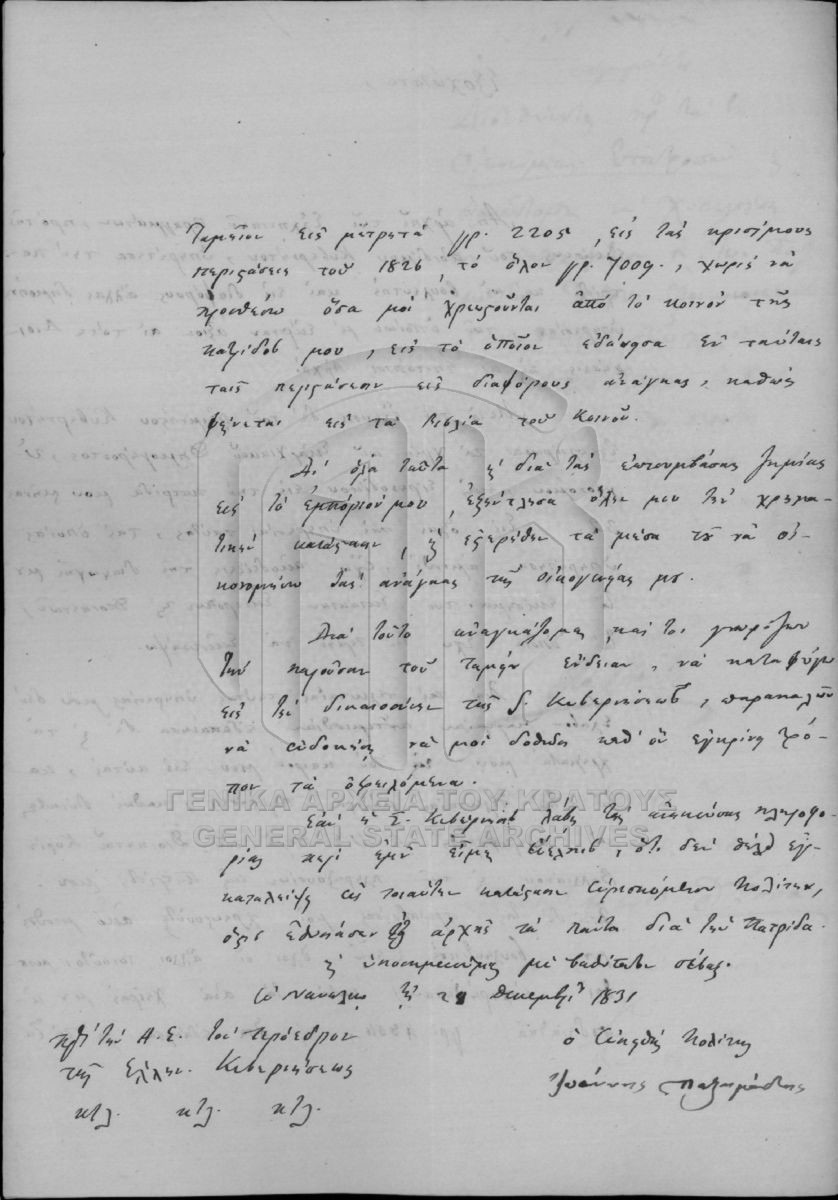 Ταμεῖον εἰς μετρητὰ γρ. 2205, εἰς τὰς κρισίμους
περιστάσεις τοῦ 1826, τὸ ὅλον γρ. 7009., χωρὶς νὰ
προσθέσω ὅσα μοὶ χρεωστοῦνται ἀπὸ τὸ κοινὸν τῆς
πατρίδος μου, εἰς τὸ ὁποῖον ἐδάνησα ἐν ταύταις
ταῖς περιστάσεσιν εἰς διαφόρους ἀνάγκας, καθὼς
φαίνεται εἰς τὰ βιβλία τοῦ κοινοῦ.
Δι' ὅλα ταῦτα κ' διὰ τὰς ἐπισυμβάσας ζημίας
εἰς τὸ ἐμπόριόν μου, ἐξήντλησα ὅλην μου τὴν χρημα-
τικὴν κατάστασιν, κ' ἐστερήθην τὰ μέσα τοῦ νὰ οἰ-
κονομήσω τὰς ἀνάγκας τῆς οἰκογενείας μου.
Διὰ τοῦτο ἀναγκάζομαι, καί τοι γνωρίζων
τὴν παροῦσαν τοῦ ταμείου ἔνδειαν, νὰ καταφύγω
εἰς τὴν δικαιοσύνην τῆς Σ. Κυβερνήσεως, παρακαλῶν
νὰ εὐδοκήσῃ νὰ μοὶ δοθῶσι καθ' ὃν ἐγκρίνῃ τρό-
πον τὰ ὀφειλόμενα.
ΓΕΝΙΚΑ ΑΡΧΕΙΑ ΤΟΥ ΚΡΑΤΟΥΣ
GENERAL STATE ARCHIVES
Ἐὰν ἡ Σ. Κυβέρνησις λάβῃ τὰς πληροφο-
ρίας περὶ ἐμοῦ εἶμαι εὔελπις, ὅτι δὲν θέλει ἐγ-
καταλείψῃ εἰς τοιαύτην κατάστασιν εὑρισκόμενον πολίτην,
ὅστις ἐθυσίασεν ἐξ ἀρχῆς τὰ πάντα διὰ τὴν Πατρίδα.
κ' ὑποσημειοῦμαι μὲ βαθύτατον σέβας.
Ἐν Ναυπλίῳ τῇ 21 Δεκεμβρίου 1831
Πρὸς τὴν Α. Ε. τὸν πρόεδρον
τῆς Ἑλλην. Κυβερνήσεως
κτλ. κτλ. κτλ.
ὁ εὐπειθὴς πολίτης
Ἰωάννης